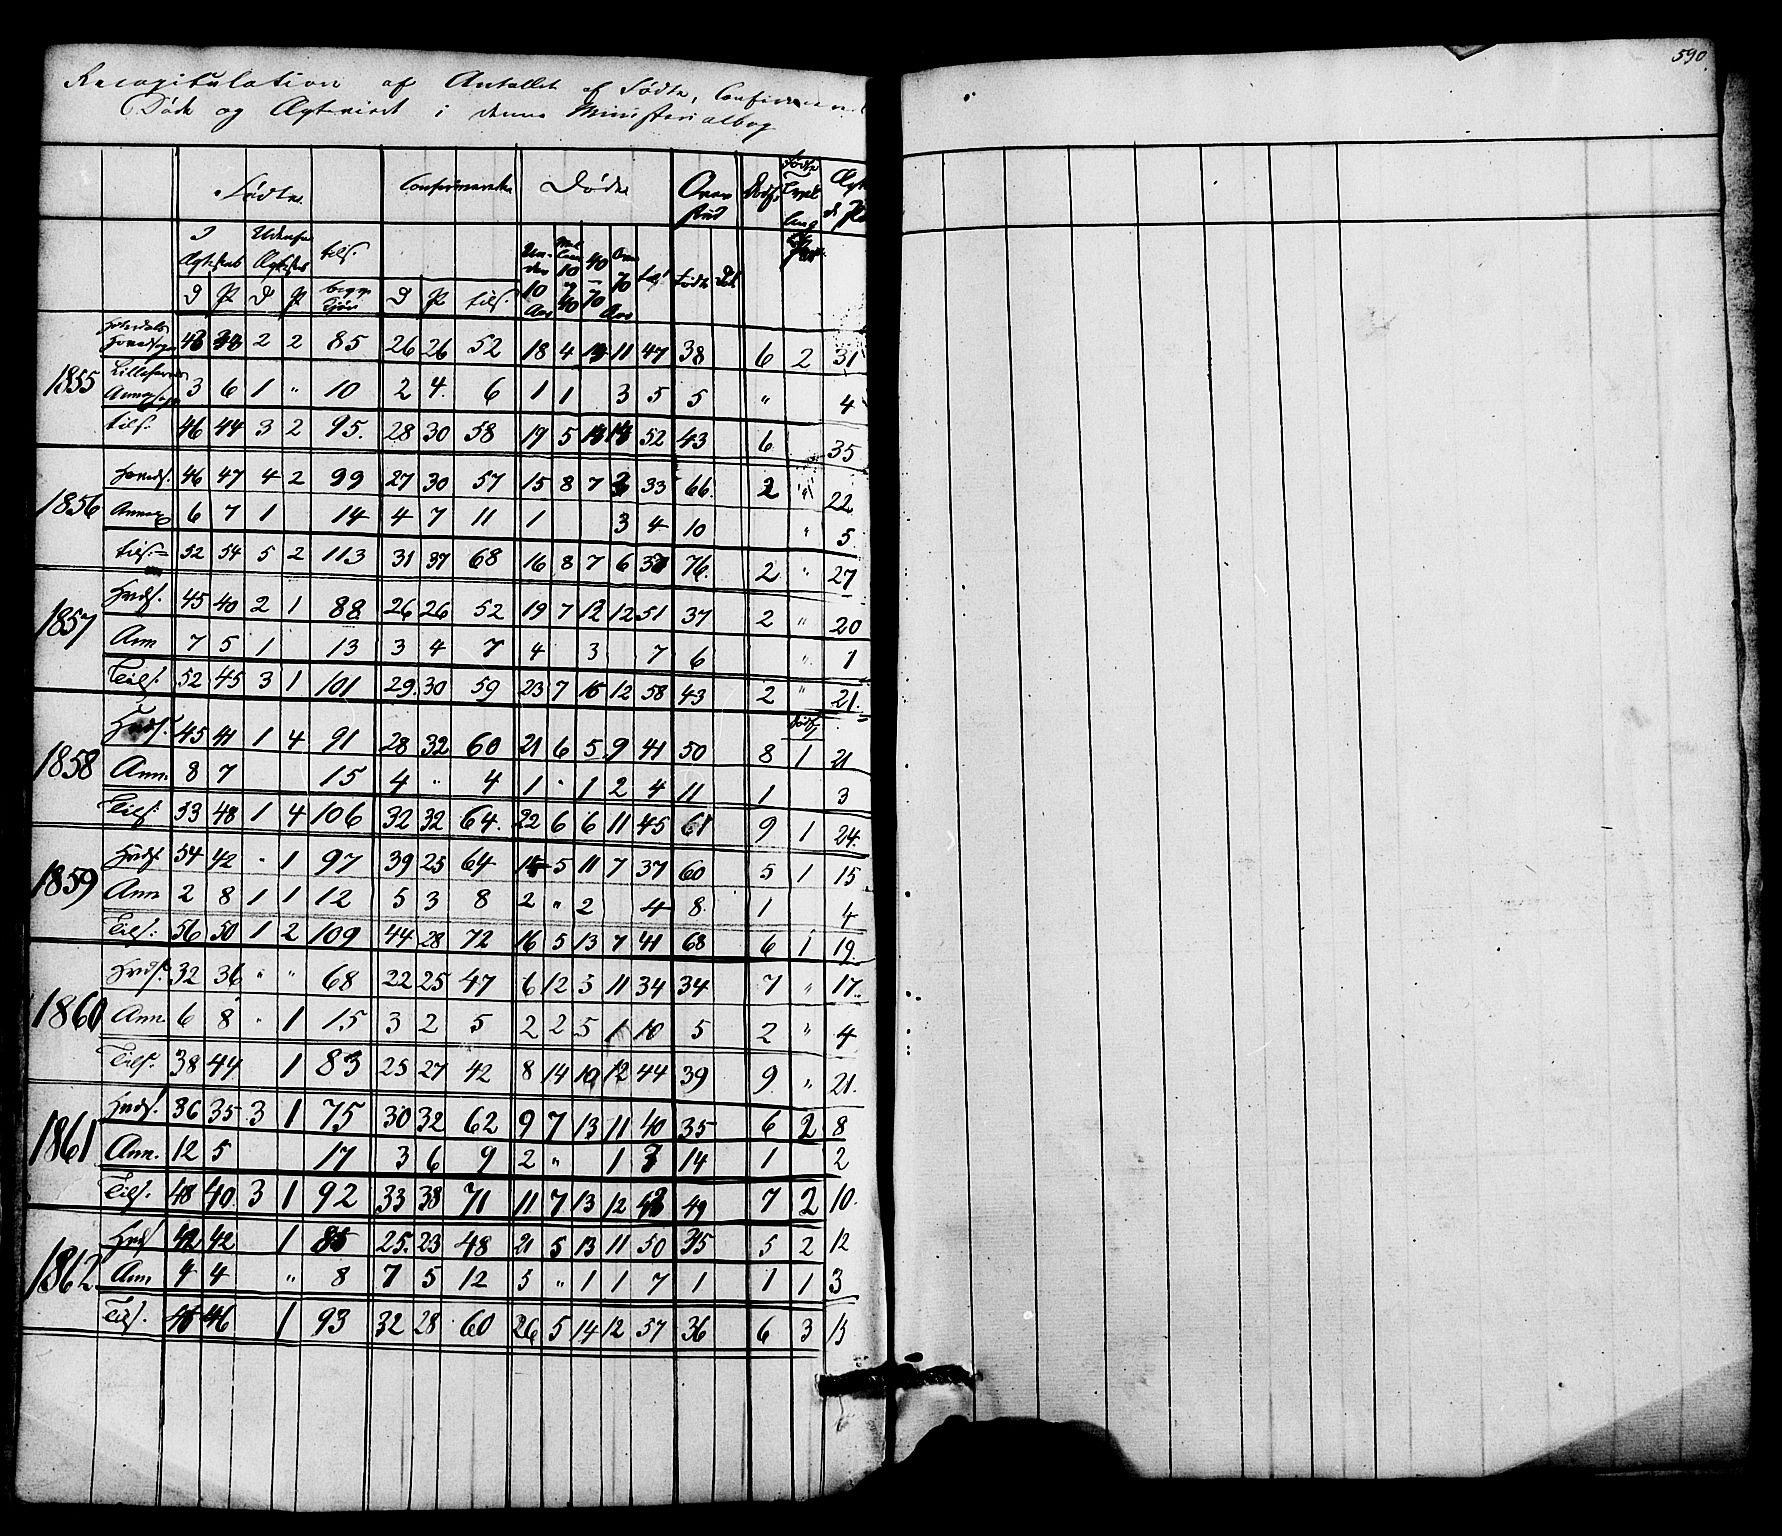 590.
Recapitulation af Antallet af Fødte, Confirmerede
Døde og Ægteviede i denne Ministerialbog
Fødte Confirmerede Døde Over skud Dødf.
I Ægteskab Udenfor Ægteskab tils. Un- der 10 Aar 10 40 40 70 Over 70 Aar tils. Fødte
D P D P begge Kjøn D P tils.
1855
Hovedsogn 2 2 85 26 26 52 18 4 11 47 38 6 2 31
Annexsogn 3 6 1 " 10 2 4 6 1 1 3 5 5 " 4
tils. 46 44 3 2 95. 28 30 58 19 5 52 43 6 35
1856
Hoveds. 46 47 4 2 99 27 30 57 15 8 7 33 66. 2 " 22
Annex 6 7 1 14 4 7 11 1 3 4 10 " 5
tils. 52 54 5 2 113 31 37 68 16 8 7 6 76. 2 " 27
1857
Hvds. 45 40 2 1 88 26 26 52 19 7 12 51 37 2 " 20
Ann 7 5 1 13 3 4 7 4 3 7 6 " 1
Tils. 52 45 3 1 101 29. 30 59 23 7 15 12 58 43 2 " 21.
1858
Hvds. 45 41 1 4 91 28 32 60 21 6 5 9 41 50 8 1 21
Ann. 8 7 15 4 " 4 1 " 1 2 4 11 1 3
Tils. 53 48 1 4 106 32 32 64. 22 6 6 11 45 61 9 1 24.
1859
Hvds. 54 42 " 1 97 39 25 64 5 11 7 37 60 5 1 15
Ann 2 8 1 1 12 5 3 8 2 " 2 4 8. 1 4
Tils. 56 50 1 2 109 44 28 72 16 5 13 7 41 68 6 1 19.
1860
Hvds. 32 36 " " 68 22 25 47 6 12 3 11 34 34 7 " 17.
Ann. 6 8 " 1 15 3 2 5 2 2 5 1 10 5 2 " 4
Tils. 38 44 1 83 25 27 42 8 14 12 44 39 9 " 21.
1861
Hvds. 36 35 3 1 75 30 32 62 9 7 13 11 40 35 6 2 8
Ann. 12 5 17 3 6 9 2 " 1 3 14 1 2
Tils. 48 40 3 1 92 33 38 71 11 7 13 12 43 49 7 2 10.
1862
Hvds 42 42 1 85 25. 23 48 21 5 13 11 50 35 5 2 12
Ann 4 4 " 8 7 5 12 5 " 1 1 7 1 1 1 3
Tils. 46 1 93 32 28 60 26 5 14 12 57 36 6 3 15